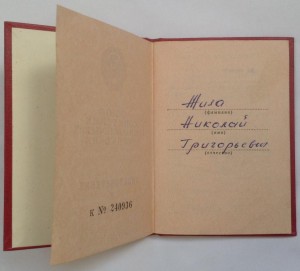 К № 240936
Жила
(фамилия)
Николай
(имя)
Григорьевич
(отчество)